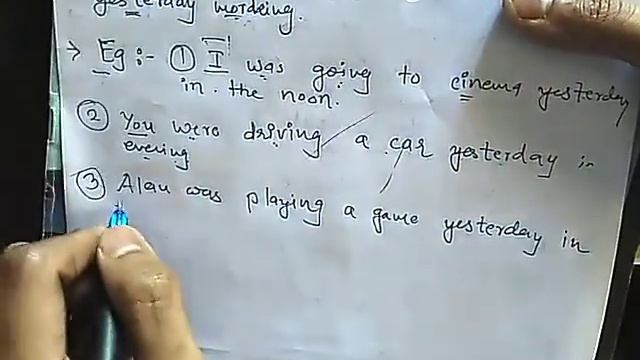 yesterday mordeing.
→ Eg :- ① I was going to cinema yesterday
in . the noon.
② You were driving a car yesterday in
evening
③ Alan was playing a game yesterday in